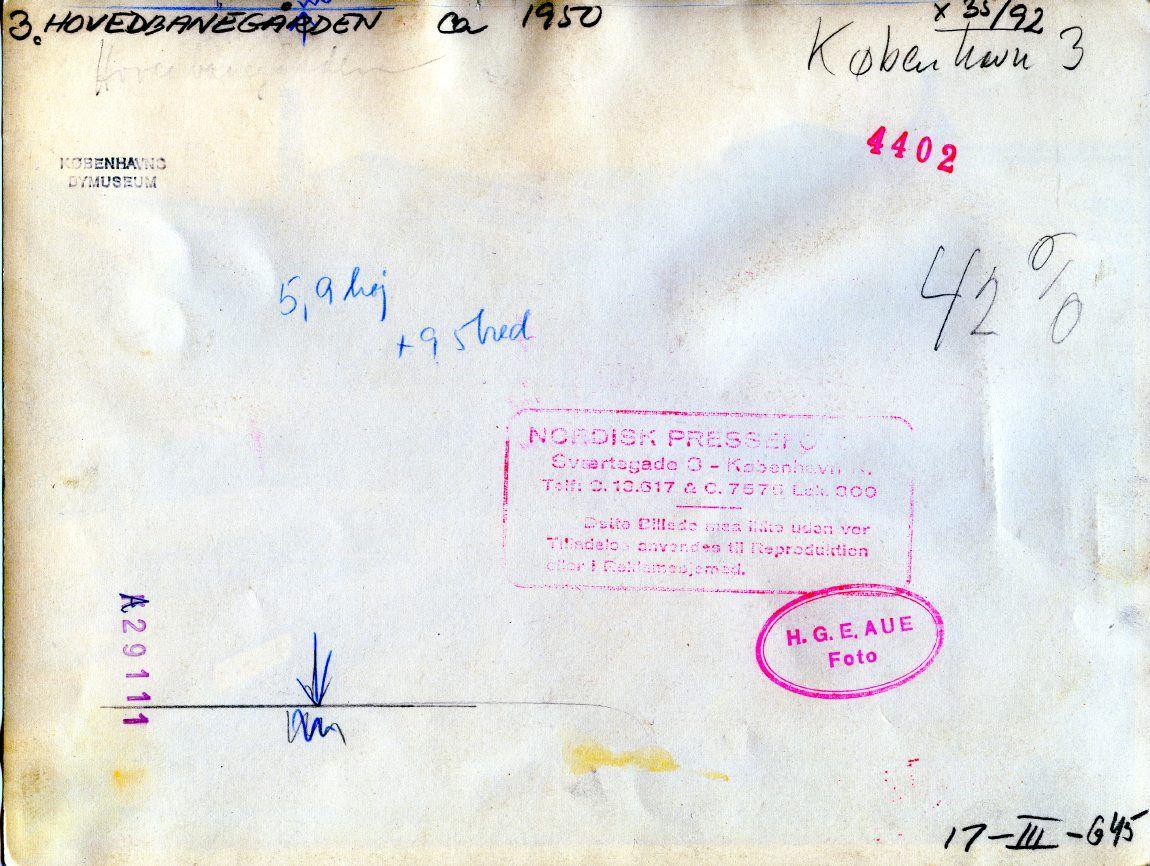 3. HOVEDBANEGÅRDEN ca 1950
x 35/92
Hovedbanegården
København 3
4402
KØBENHAVNS
BYMUSEUM
42 %
5,9 høj
+ 9 5 bred
NORDISK PRESSEFO
Sværtegade 3 - København K.
Telf: C. 13.617 & C. 7575 Lok. 300
Dette Billede maa ikke uden vor
Tilladelse anvendes til Reproduktion
eller i Reklameøjemed.
H. G. E. AUE
Foto
A29111
17-III-645